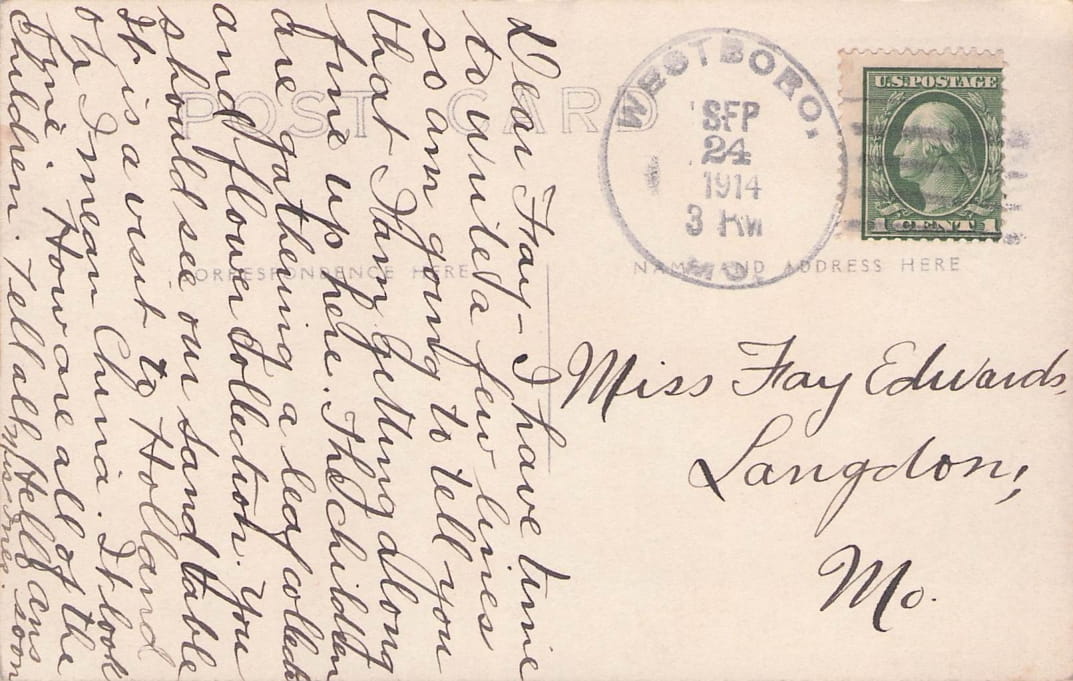 POST CARD
CORRESPONDENCE HERE
Dear Fay - I have time
to write a few lines
so am going to tell you
that I am getting along
fine up here. The children
are gathering a leaf collect
and flower collection. You
should see our sand table
It is a visit to Holland
oh I mean China. It look
fine. How are all of the
children. Tell all Hello ans
soon
Miss Inez.
WESTBORO,
SEP
24
1914
3 PM
MO.
U.S. POSTAGE
1 CENT 1
NAME AND ADDRESS HERE
Miss Fay Edwards,
Langdon,
Mo.